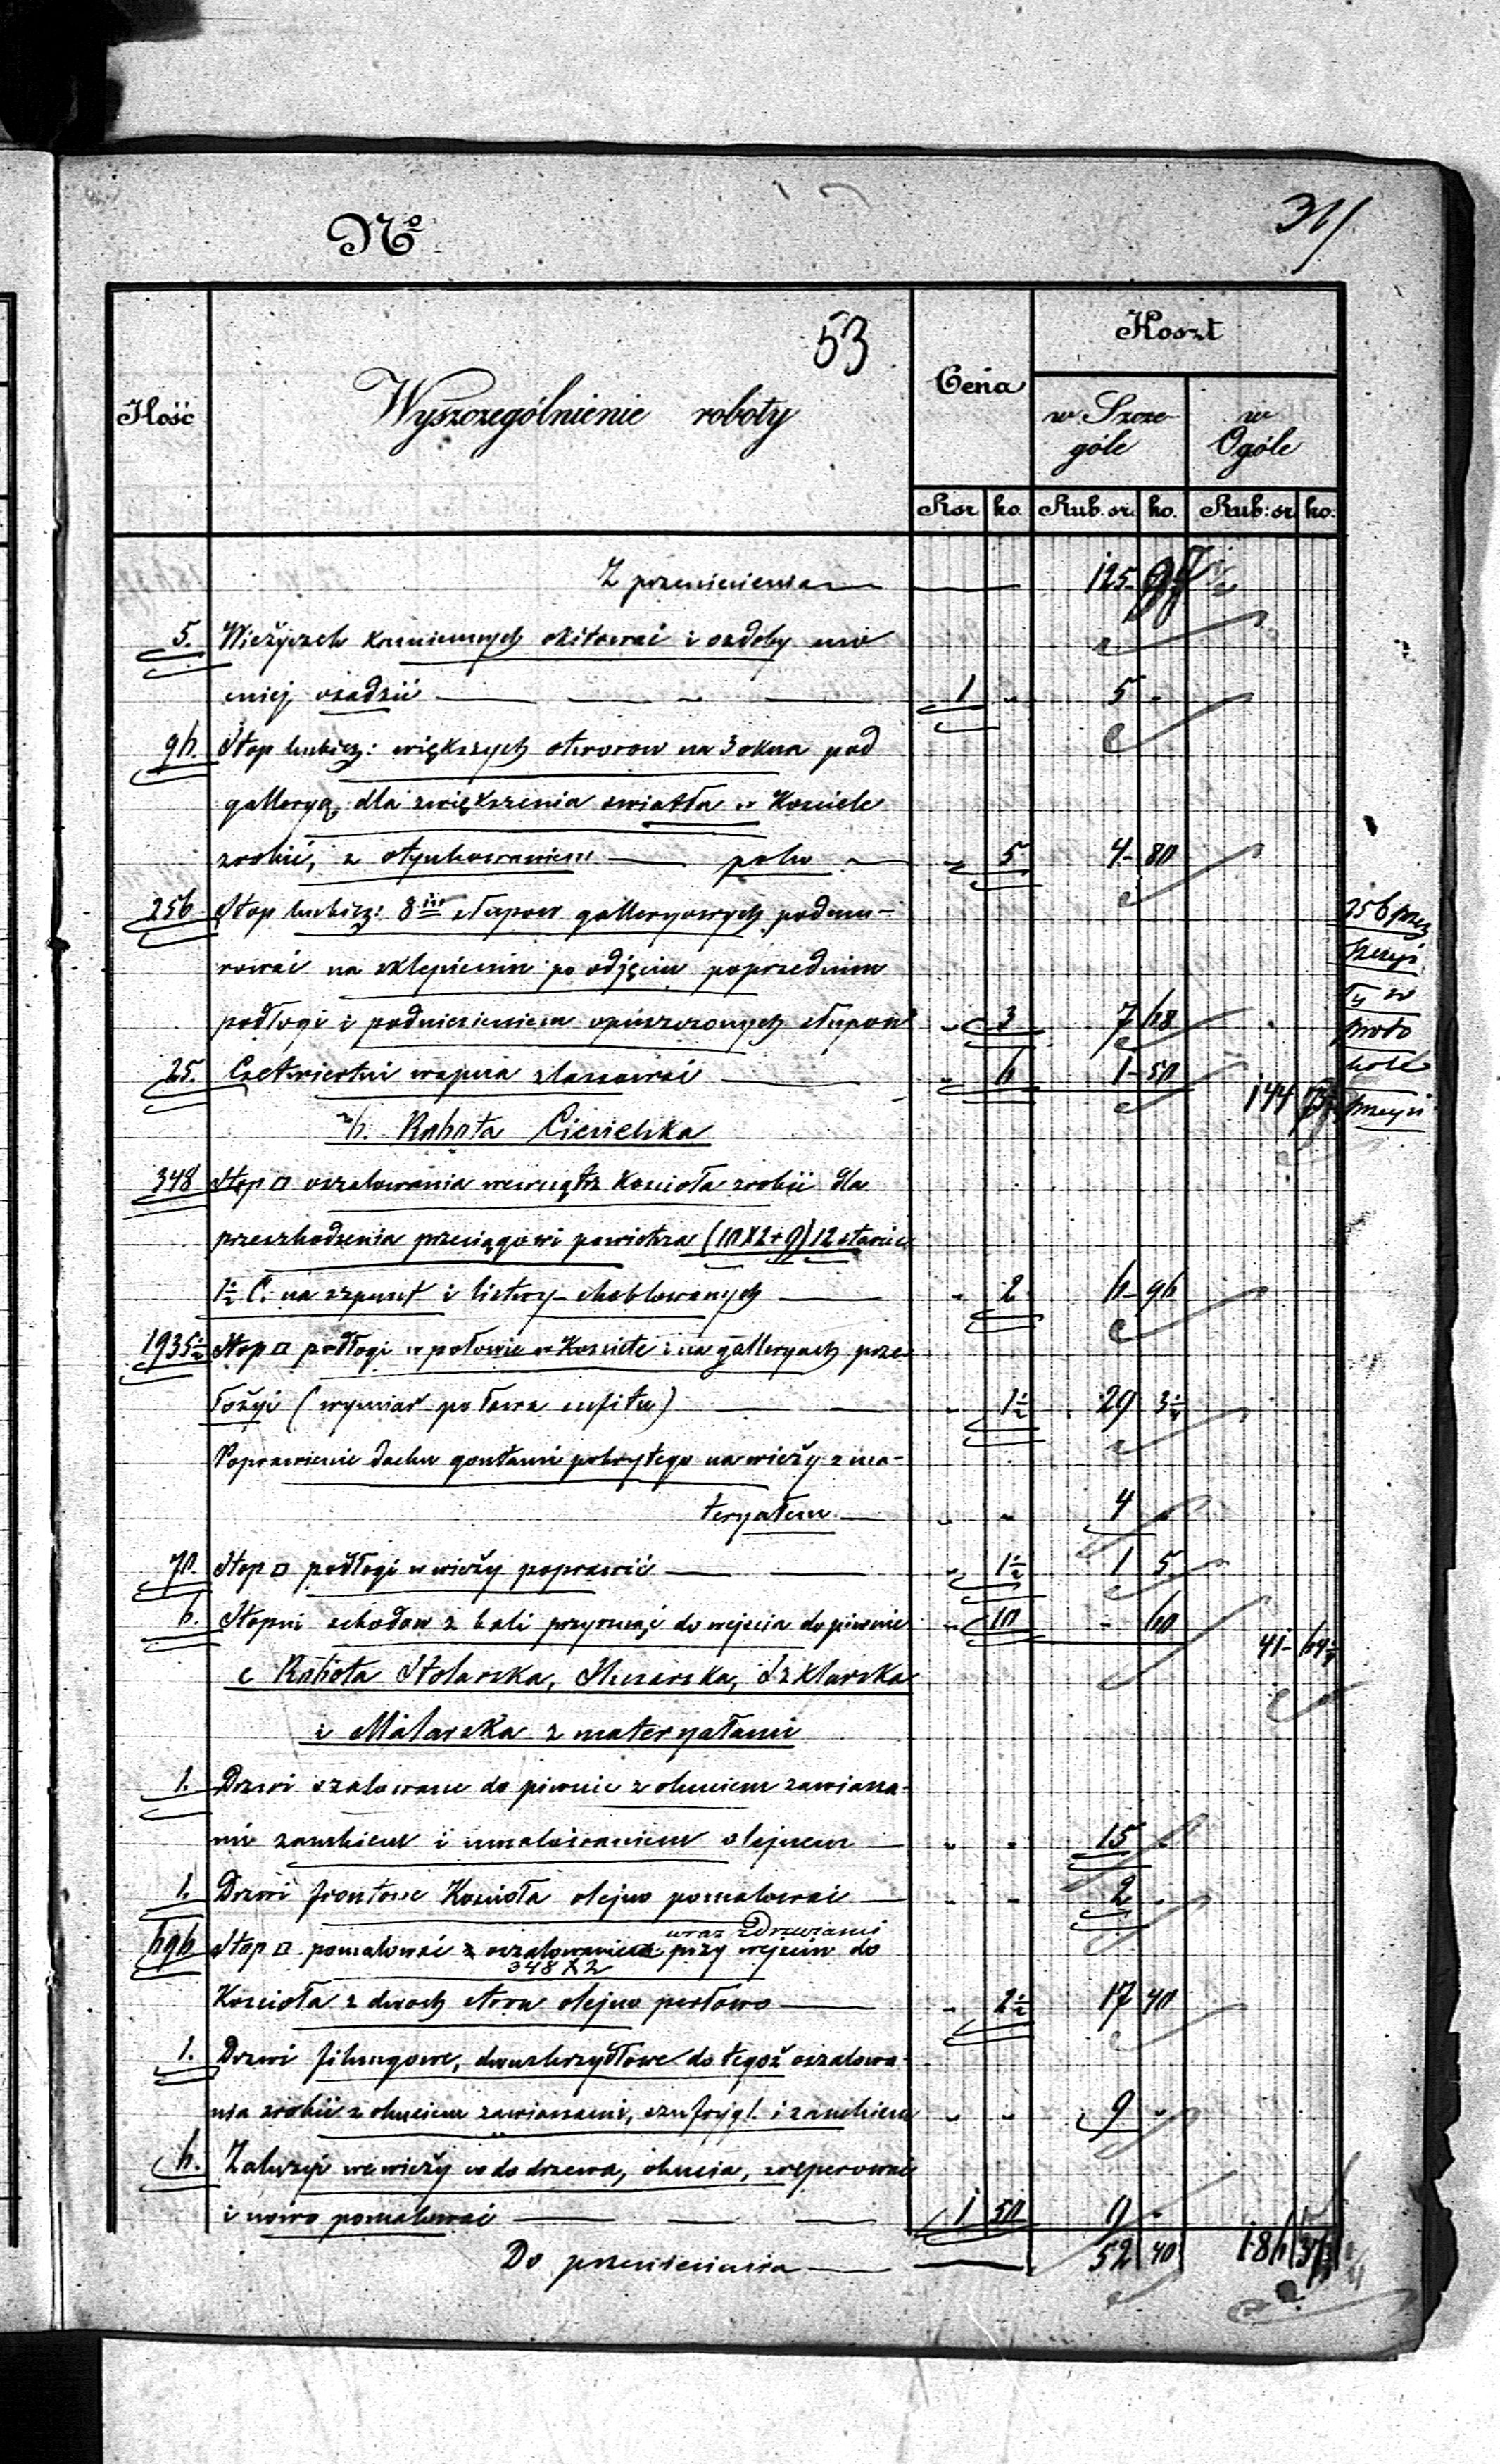 №
53
Ilość
Wyszczególnienie roboty
Cena
Koszt
w Szcze-
góle
w
Ogóle
Rsr ko. Rub. sr. ko. Rub: sr ko:
Z przeniesienia — — 125
5. Wieżyczek kamiennych okitować i ozdoby
osadzić — — 1 " 5 "
96. Stop kubicz: większych otworow na 3 okna pod
galleryą, dla zwiększenia swiatła w Kosciele
zrobić, z otynkowaniem — — " 5 4 80
256 Stop kubicz: 8miu słupow galleryowych podmu-
rować na sklepieniu po odjęciu poprzedniem
podłogi i podniesieniem opuszczonych słupow " 3 7 68
25. Czetwiertni wapna zlasować — " 6 1 50
144
b. Robota Ciesielska
348 Stop □ oszalowania wewnątrz Kosciota zrobić dla
przeszkodzenia przeciągowi powietrza (10X2+9)12 stanie
1½ C. na szpunt i listwy heblowanych — " 2 6 96
1935½ Stop □ podłogi w połowie w Kosciele i na galleryach prze-
łożyć (wymiar połowa sufitu) — — " 1½ 29 3½
Poprawienie dachu gontami pokrytego na wieży z ma-
teryałem — " " 4 "
70. Stop □ podłogi w wieży poprawić — — " 1½ 1 5
6. Stopni schodow z bali przyrznąć do wejscia do piwnic " 10 - 60
41 64½
c Robota Stolarska, Slusarska, Szklarska
i Malarska z materyałami
1. Drzwi szalowane do piwnic z okuciem zawiasa-
mi zamkiem i umalowaniem olejnem — " " 15 "
1. Drzwi frontowe Kosciota olejno pomalować — " " 2 "
wraz z Drzwiami
696 Stop □ pomalować oszalowanie przy wejsciu do
348 X 2
Kosciota z dwoch stron olejno perłowo — " 2½ 17 40
1. Drzwi filungowe, dwuskrzydłowe do tegoż oszalowa-
nia zrobić z okuciem zawiasami, szufrygl. i zamkiem " " 9 "
6. Zaluzyi w wieży co do drzewa, okucia, zreperować
i nowo pomalować — — — 1 50 9 "
Do przeniesienia — — 52 40 186
256